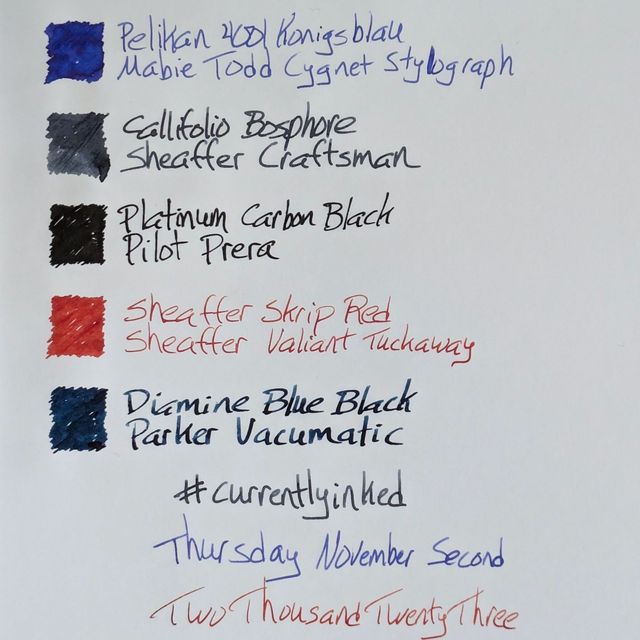 Pelikan 4001 Konigsblau
Mabie Todd Cygnet Stylograph
Callifolio Bosphore
Sheaffer Craftsman
Platinum Carbon Black
Pilot Prera
Sheaffer Skrip Red
Sheaffer Valiant Tuckaway
Diamine Blue Black
Parker Vacumatic
#currentlyinked
Thursday November Second
Two Thousand Twenty Three